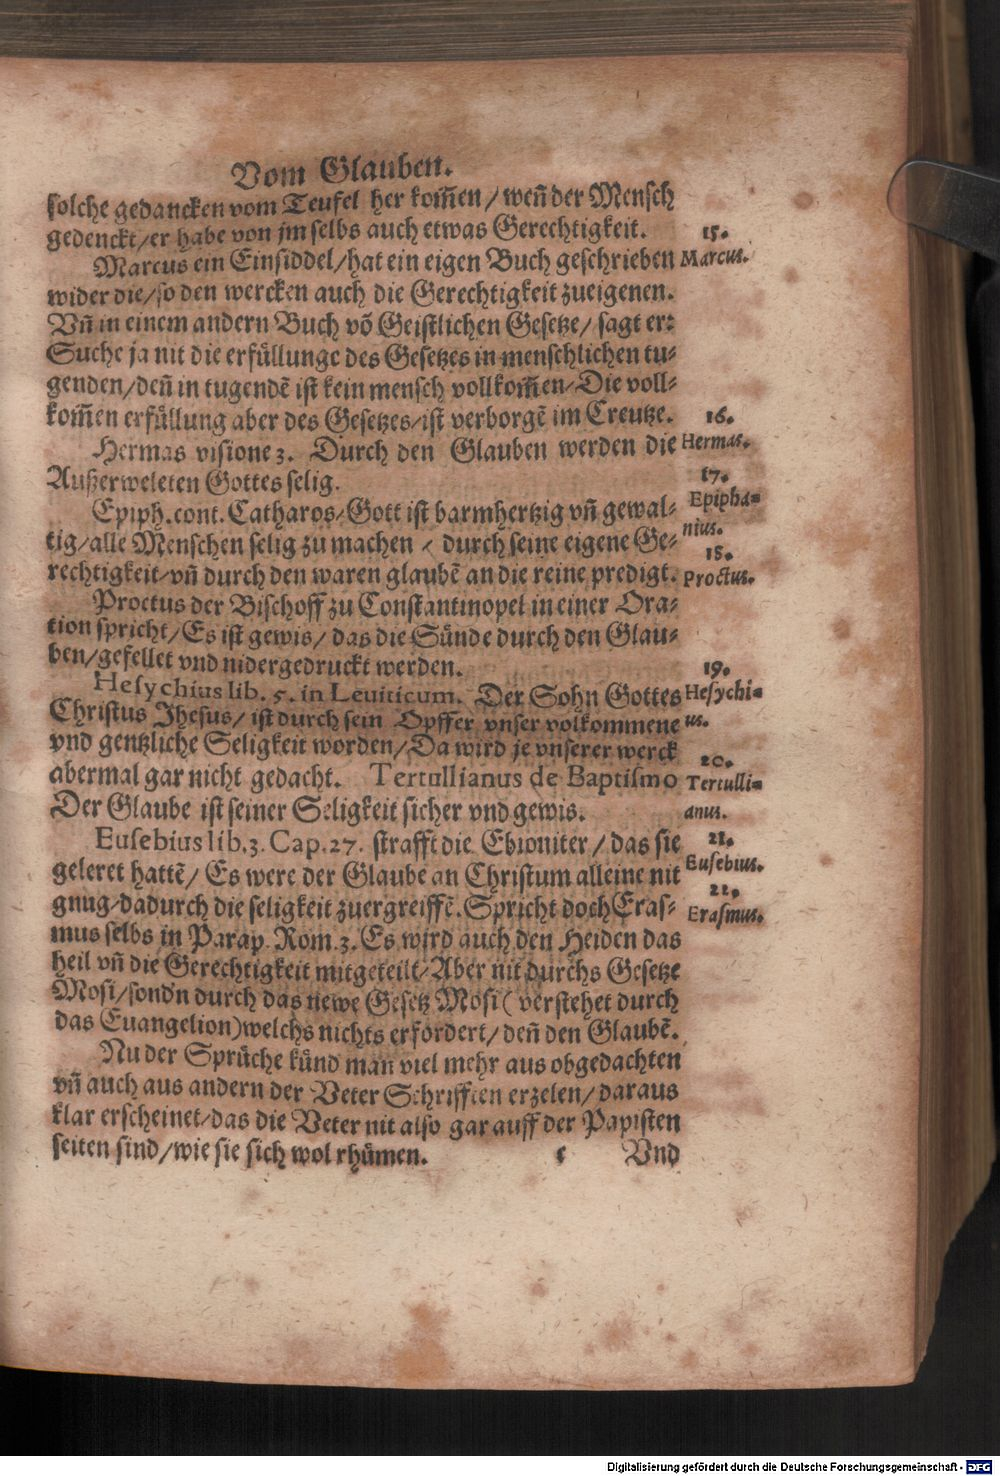 Vom Glauben.
solche gedancken vom Teufel her kom̃en / weñ der Mensch
gedenckt / er habe von jm selbs auch etwas Gerechtigkeit.
15.
Marcus ein Einsiddel / hat ein eigen Buch geschrieben
Marcus.
wider die / so den wercken auch die Gerechtigkeit zueigenen.
Vñ in einem andern Buch võ Geistlichen Gesetze / sagt er:
Suche ja nit die erfüllunge des Gesetzes in menschlichen tu-
genden / deñ in tugendẽ ist kein mensch vollkom̃en / Die voll-
kom̃en erfüllung aber des Gesetzes / ist verborgẽ im Creutze.
16.
Hermas visione 3. Durch den Glauben werden die
Hermas.
Außerweleten Gottes selig.
17.
Epiph. cont. Catharos / Gott ist barmhertzig vñ gewal-
Epipha-
nius.
tig / alle Menschen selig zu machen / durch seine eigene Ge-
18.
rechtigkeit / vñ durch den waren glaubẽ an die reine predigt.
Proctus.
Proctus der Bischoff zu Constantinopel in einer Ora-
tion spricht / Es ist gewis / das die Sünde durch den Glau-
ben / gefellet vnd nidergedruckt werden.
19.
Hesychius lib. 5. in Leuiticum. Der Sohn Gottes
Hesychi-
Christus Jhesus / ist durch sein Opffer vnser volkommene
us.
vnd gentzliche Seligkeit worden / Da wird je vnserer werck
20.
abermal gar nicht gedacht. Tertullianus de Baptismo
Tertulli-
Der Glaube ist seiner Seligkeit sicher vnd gewis.
anus.
21.
Eusebius lib. 3. Cap. 27. strafft die Ebioniter / das sie
Eusebius.
geleret hattẽ / Es were der Glaube an Christum alleine nit
22.
gnug / dadurch die seligkeit zuergreiffẽ. Spricht doch Eras-
Erasmus.
mus selbs in Parap. Rom. 3. Es wird auch den Heiden das
heil vñ die Gerechtigkeit mitgeteilt / Aber nit durchs Gesetze
Mosi / sond'n durch das newe Gesetz Mosi ( verstehet durch
das Euangelion) welchs nichts erfordert / deñ den Glaubẽ.
Nu der Sprüche künd man viel mehr aus obgedachten
vñ auch aus andern der Veter Schrifften erzelen / daraus
klar erscheinet / das die Veter nit also gar auff der Papisten
seiten sind / wie sie sich wol rhümen.
c Vnd
Digitalisierung gefördert durch die Deutsche Forschungsgemeinschaft - DFG